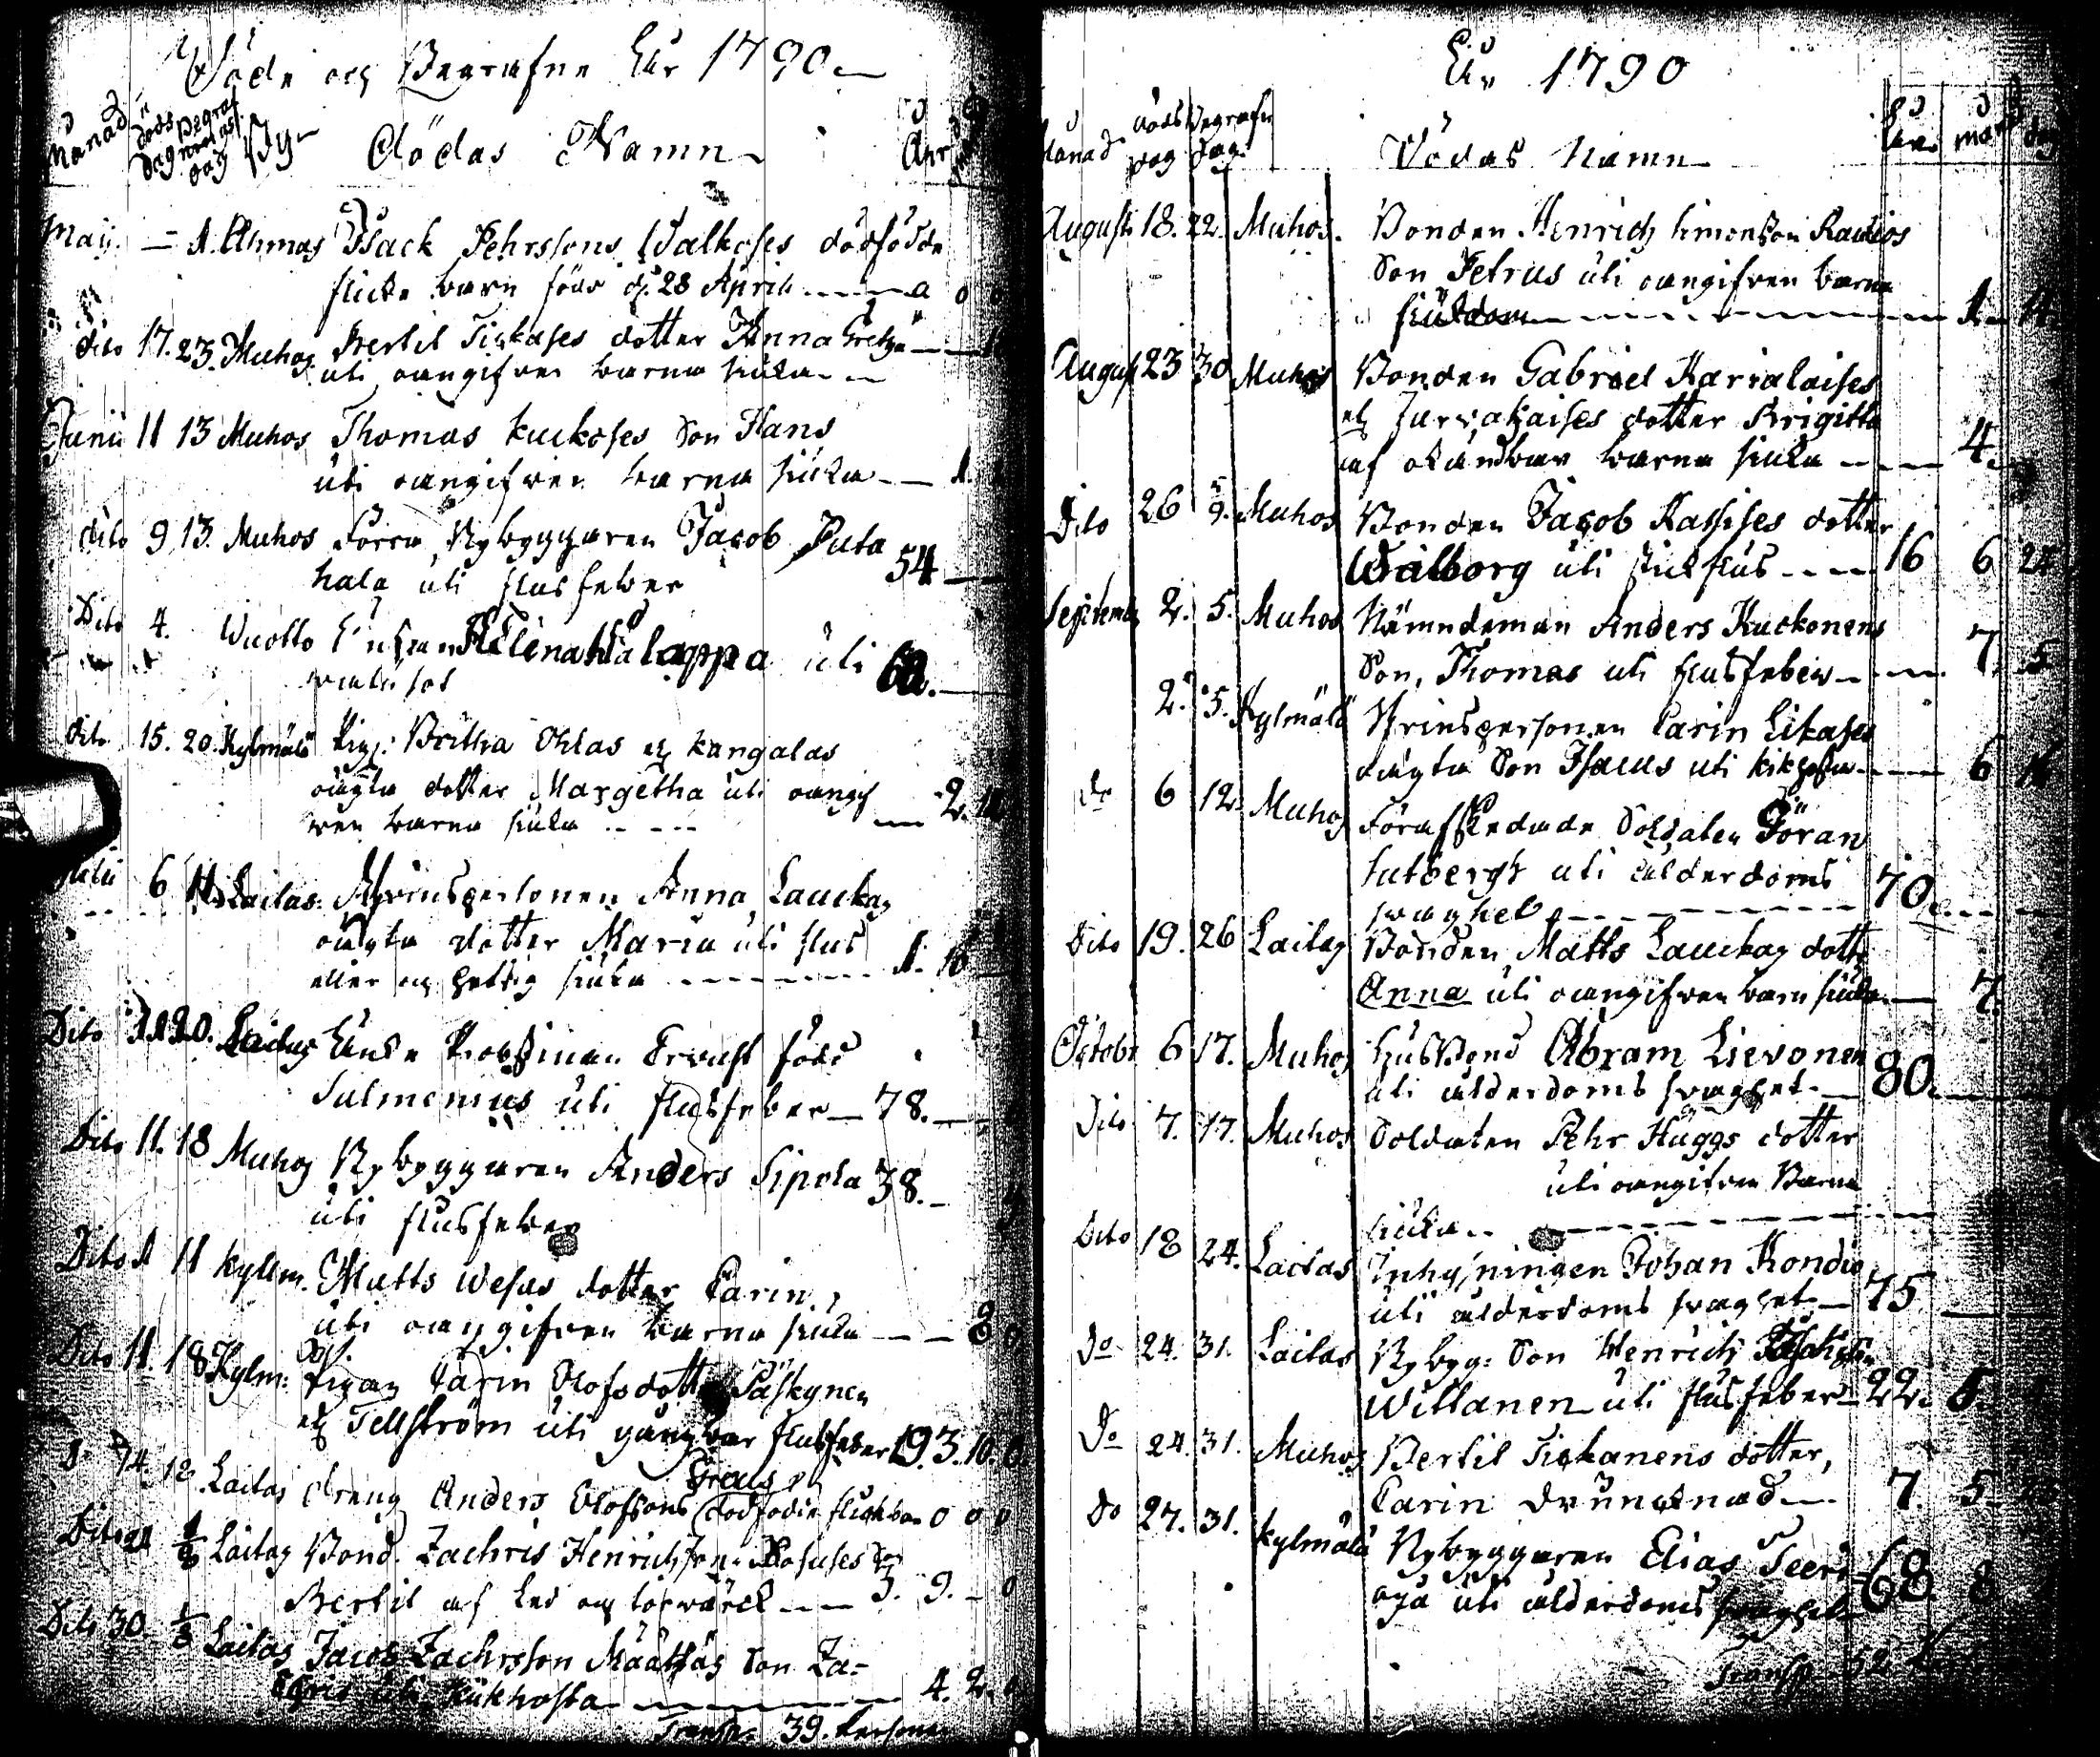 Döde och Begrafne Åhr 1790
Månad döds dag Begrafnings dag By
Dödas Namn
Åhr
Maij. — A. Ahmas Isack Pehrssons Walkoses dödfödde
flicke barn född d. 28 April ---- 0 0 0
dito 17. 23. Muhos Bertil Tickases dotter Anna Greta
uti oangifven barna siuka
Junii 11 13 Muhos Thomas Kuckoses Son Hans
uti oangifven barna siuka — 1.
dito 9 13. Muhos Förra Nybyggaren Jacob Juta
hala uti flusfeber 54 —
Dito 4. Wuotto Enkan Helena Halappa uti
watusot 60. —
dito 15. 20. Kylmälä Pig: Britha Ohlas el Kangalas
oägta dotter Margetha uti oangif
ven barna siuka — 2.
Julii 6 11 Laitas: Qvinspersonen Anna Lauckas
oägta dotter Maria uti flus
eller och hettsig siuka 1. 10
Dito 20. Laitas Enke Probstinnan Ervast född
Salmenius uti flusfeber — 78. —
Dito 11. 18 Muhos Nybyggaren Anders Sipola 38. —
uti flusfeber
Dito 1 11 Kylm. Matts Wesas dotter Carin,
uti oangifven barna siuka — — 8
Dito 11. 18 Kylm: Pigan Carin Olofsdotter Päskynen
el Tellström uti gångbar flusfeber 19. 3. 10. 0
Do 14. 18 Laitas dreng Anders Olofsons dödfödde flickbarn 0 0 0
Dito 21 1/8 Laitas Bond. Zachris Henrichson Kosuses Son
Bertil af led och torvärck --- 3. 9. — 0
Dito 30 1/8 Laitas Jacob Zachrsson Määttäs Son Za=
chris uti Kikhosta — 4. 2.
Transp. 39. Personer
Åhr 1790
Månad döds dag Begrafn dag
Dödas Namn
åhr mån dag
August 18. 22. Muhos. Bonden Henrich Simonson Raudios
Son Petrus uti oangifven barna
siukdom — 1.
August 23 30 Muhos Bonden Gabriel Karialaises
el Jurvakaises dotter Brigitta
af okändbar barna siuka — 4.
Dito 26 5/9. Muhos Bonden Jacob Kassises dotter
Walborg uti stickflus --- 16 6 24
Septemb. 2. 5. Muhos Nämndeman Anders Kuckonens
Son, Thomas uti flusfeber — 7. 5
2. 5. Kylmälä Qvinspersonen Carin Likases
oägta Son Isacus uti kikhosta — 6 16
do 6 12. Muhos Förafskedade Soldaten Göran
Lutbergh uti ålderdoms
svaghet — 70
Dito 19. 26 Laitas Bonden Matts Lauckas dotter
Anna uti oangifven barn siuka — 7.
October 6 17. Muhos Husbond Abram Lievonen
uti ålderdoms svaghet. — 80.
Dito 7. 17. Muhos Soldaten Pehr Huggs dotter
uti oangifven Barna
siuka..
Dito 18 24. Laitas Inhysningen Johan Kondio
uti ålderdoms svaghet — 75 —
Do 24. 31. Laitas Nybyg: Son Henrich
Willanen uti flusfeber — 22. 5.
Do 24. 31. Muhos Bertil Tickanens dotter,
Carin drunknad — 7. 5
Do 27. 31. Kylmälä Nybyggaren Elias Teeri=
oja uti ålderdoms svaghet 68 8
Transp. 52